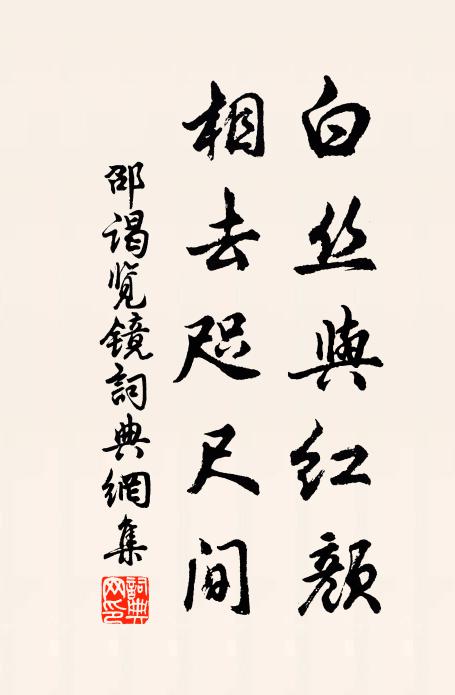 白丝與红颜
相去咫尺间
邵谒览镜詞典網集
詞典
网印